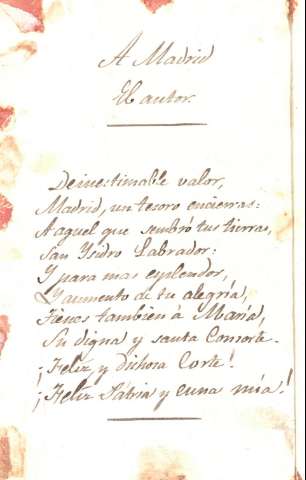 A Madrid
El autor.
De inestimable valor,
Madrid, un tesoro encierras:
A aquel que sembró tus tierras,
San Ysidro Labrador:
Y para mas esplendor,
Y aumento de tu alegría,
Tienes tambien á María,
Su digna y santa Consorte.
¡Feliz y Dichosa Corte!
¡Feliz Patria y cuna mia!